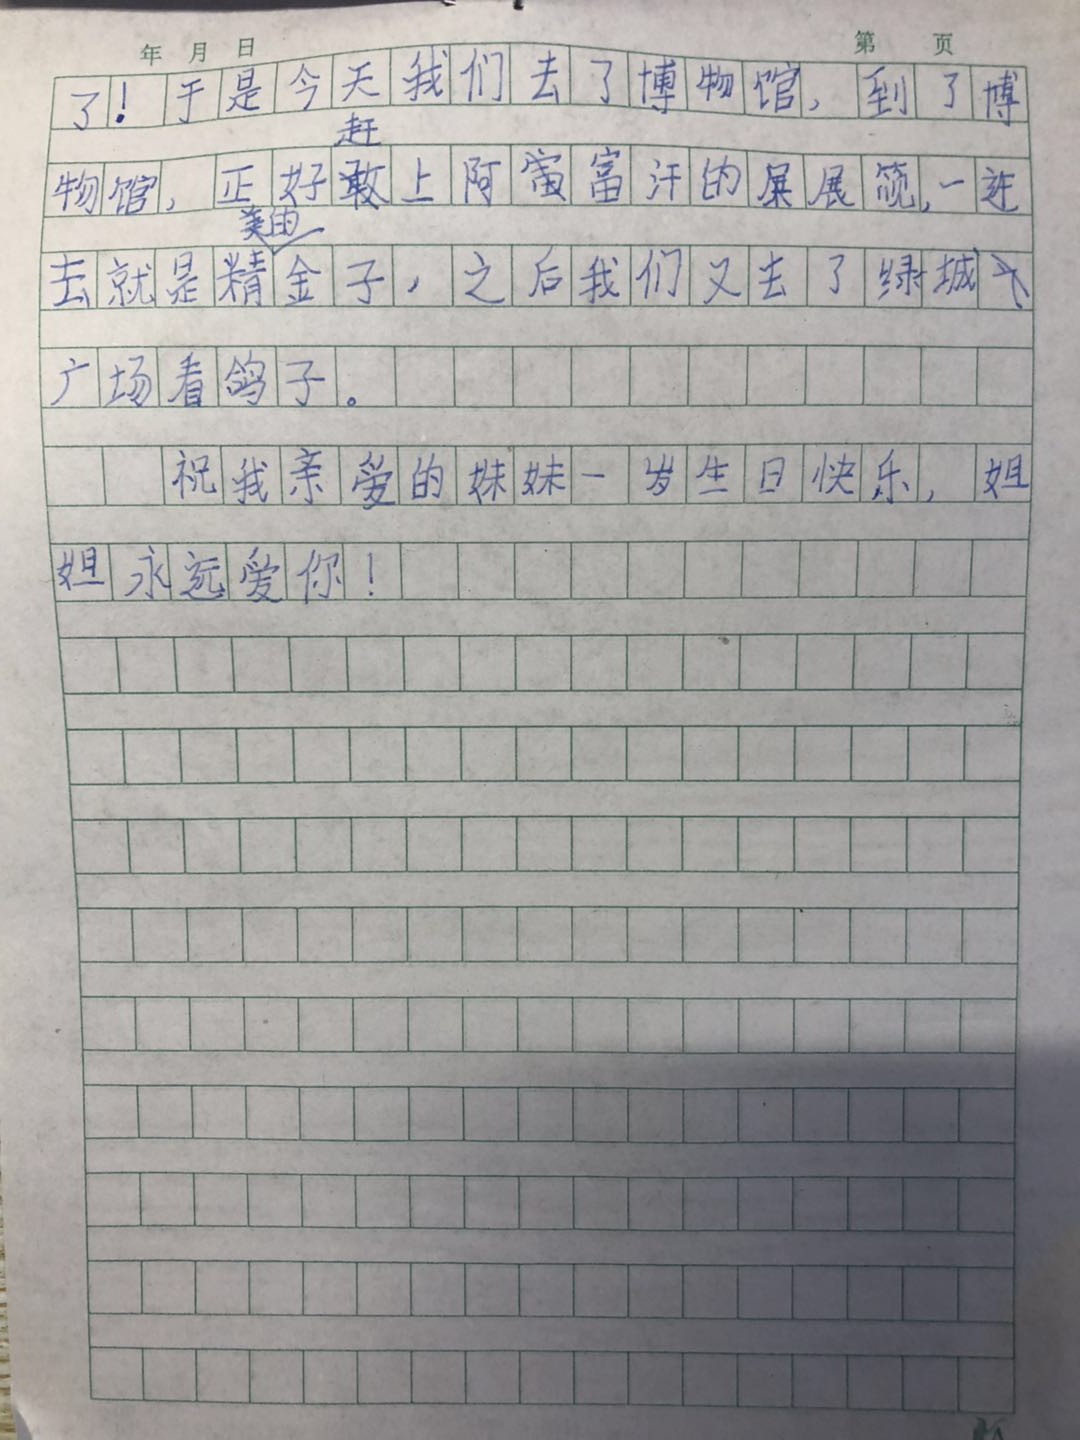 年 月 日
第 页
了！于是今天我们去了博物馆，到了博
赶
物馆，正好敢上阿富富汗的展展览，一进
美的
去就是精金子，之后我们又去了绿城
广场看鸽子。
祝我亲爱的妹妹一岁生日快乐，姐
姐永远爱你！